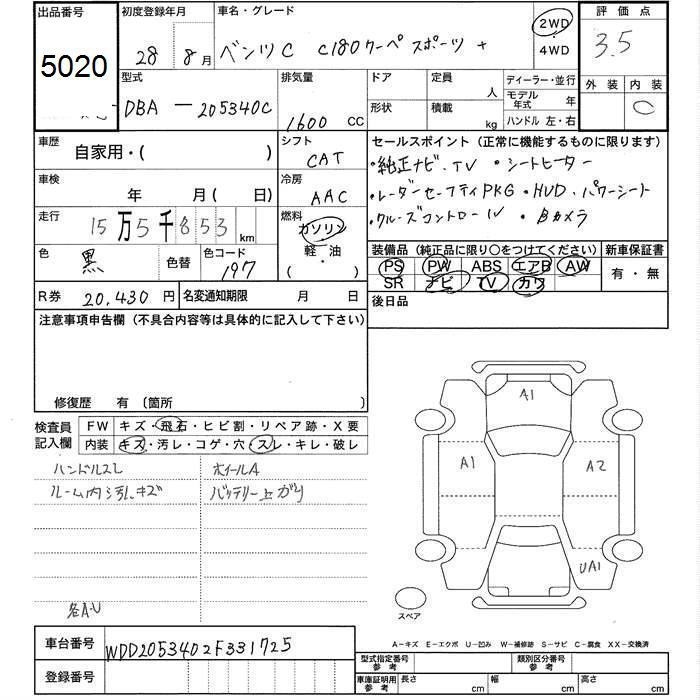 出品番号
5020
初度登録年月
28 年 8 月
車名・グレード
ベンツC C180クーペ スポーツ +
2WD
4WD
評価点
3.5
外装 内装
○
型式
DBA ー 205340C
排気量
1600 CC
ドア
形状
定員 人
積載 kg
ディーラー・並行
モデル年式 年
ハンドル 左・右
車歴
自家用・( )
シフト
CAT
セールスポイント (正常に機能するものに限ります)
・純正ナビ、TV ・シートヒーター
・レーダーセーフティPKG ・HUD、パワーシート
・クルーズコントロール ・Bカメラ
車検
年 月( 日)
冷房
AAC
走行
15万5千853 km
燃料
ガソリン
軽・油
・( )
色
黒
色替
色コード
197
装備品 (純正品に限り○をつけてください)
PS PW ABS エアB AW
SR ナビ TV カワ
新車保証書
有・無
R券 20,430 円
名変通知期限 月 日
後日品
注意事項申告欄 (不具合内容等は具体的に記入して下さい)
修復歴 有 〔箇所 〕
検査員記入欄
FW キズ・飛石・ヒビ割・リペア跡・X要
内装 キズ・汚レ・コゲ・穴・スレ・キレ・破レ
ハンドルスレ
ホイールA
ルーム内ヨゴレ、キズ
バッテリー上がり
各A・U
A1
A1
A2
UA1
スペア
A−キズ E−エクボ U−凹み W−補修跡 S−サビ C−腐食 XX−交換済
車台番号 WDD2053402F331725
登録番号
型式指定番号参考
類別区分番号参考
車庫証明用参考
長さ cm
幅 cm
高さ cm